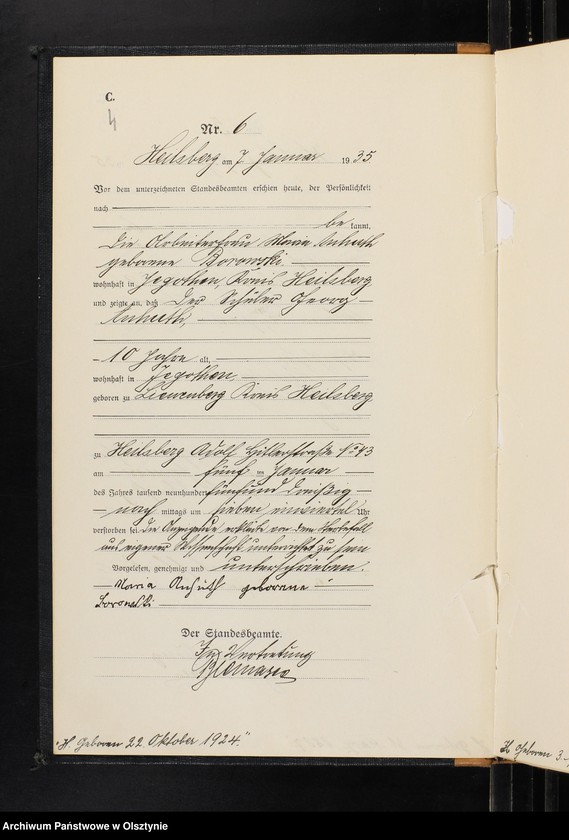 C.
4
Nr. 6
Heilsberg am 7 Januar 1935
Vor dem unterzeichneten Standesbeamten erschien heute, der Persönlichkeit
nach
be kannt,
die Arbeiterfrau Maria
geborene Borowski
wohnhaft in Jegothen, Kreis Heilsberg
und zeigte an, daß der Schüler Georg
10 Jahre alt,
wohnhaft in Jegothen,
geboren zu Kreis Heilsberg
zu Heilsberg Adolf Hitlerstraße No 43
am fünf ten Januar
des Jahres tausend neunhundert fünfund dreißig
nach mittags um sieben einviertel Uhr
verstorben sei. Die Anzeigende erklärte von dem Sterbefall
aus eigener Wissenschaft unterrichtet zu sein
Vorgelesen, genehmigt und unterschrieben.
Maria geborene
Borowski
Der Standesbeamte.
In Vertretung
"H. Geboren 22. Oktober 1924."
H. Geboren 3.
Archiwum Państwowe w Olsztynie